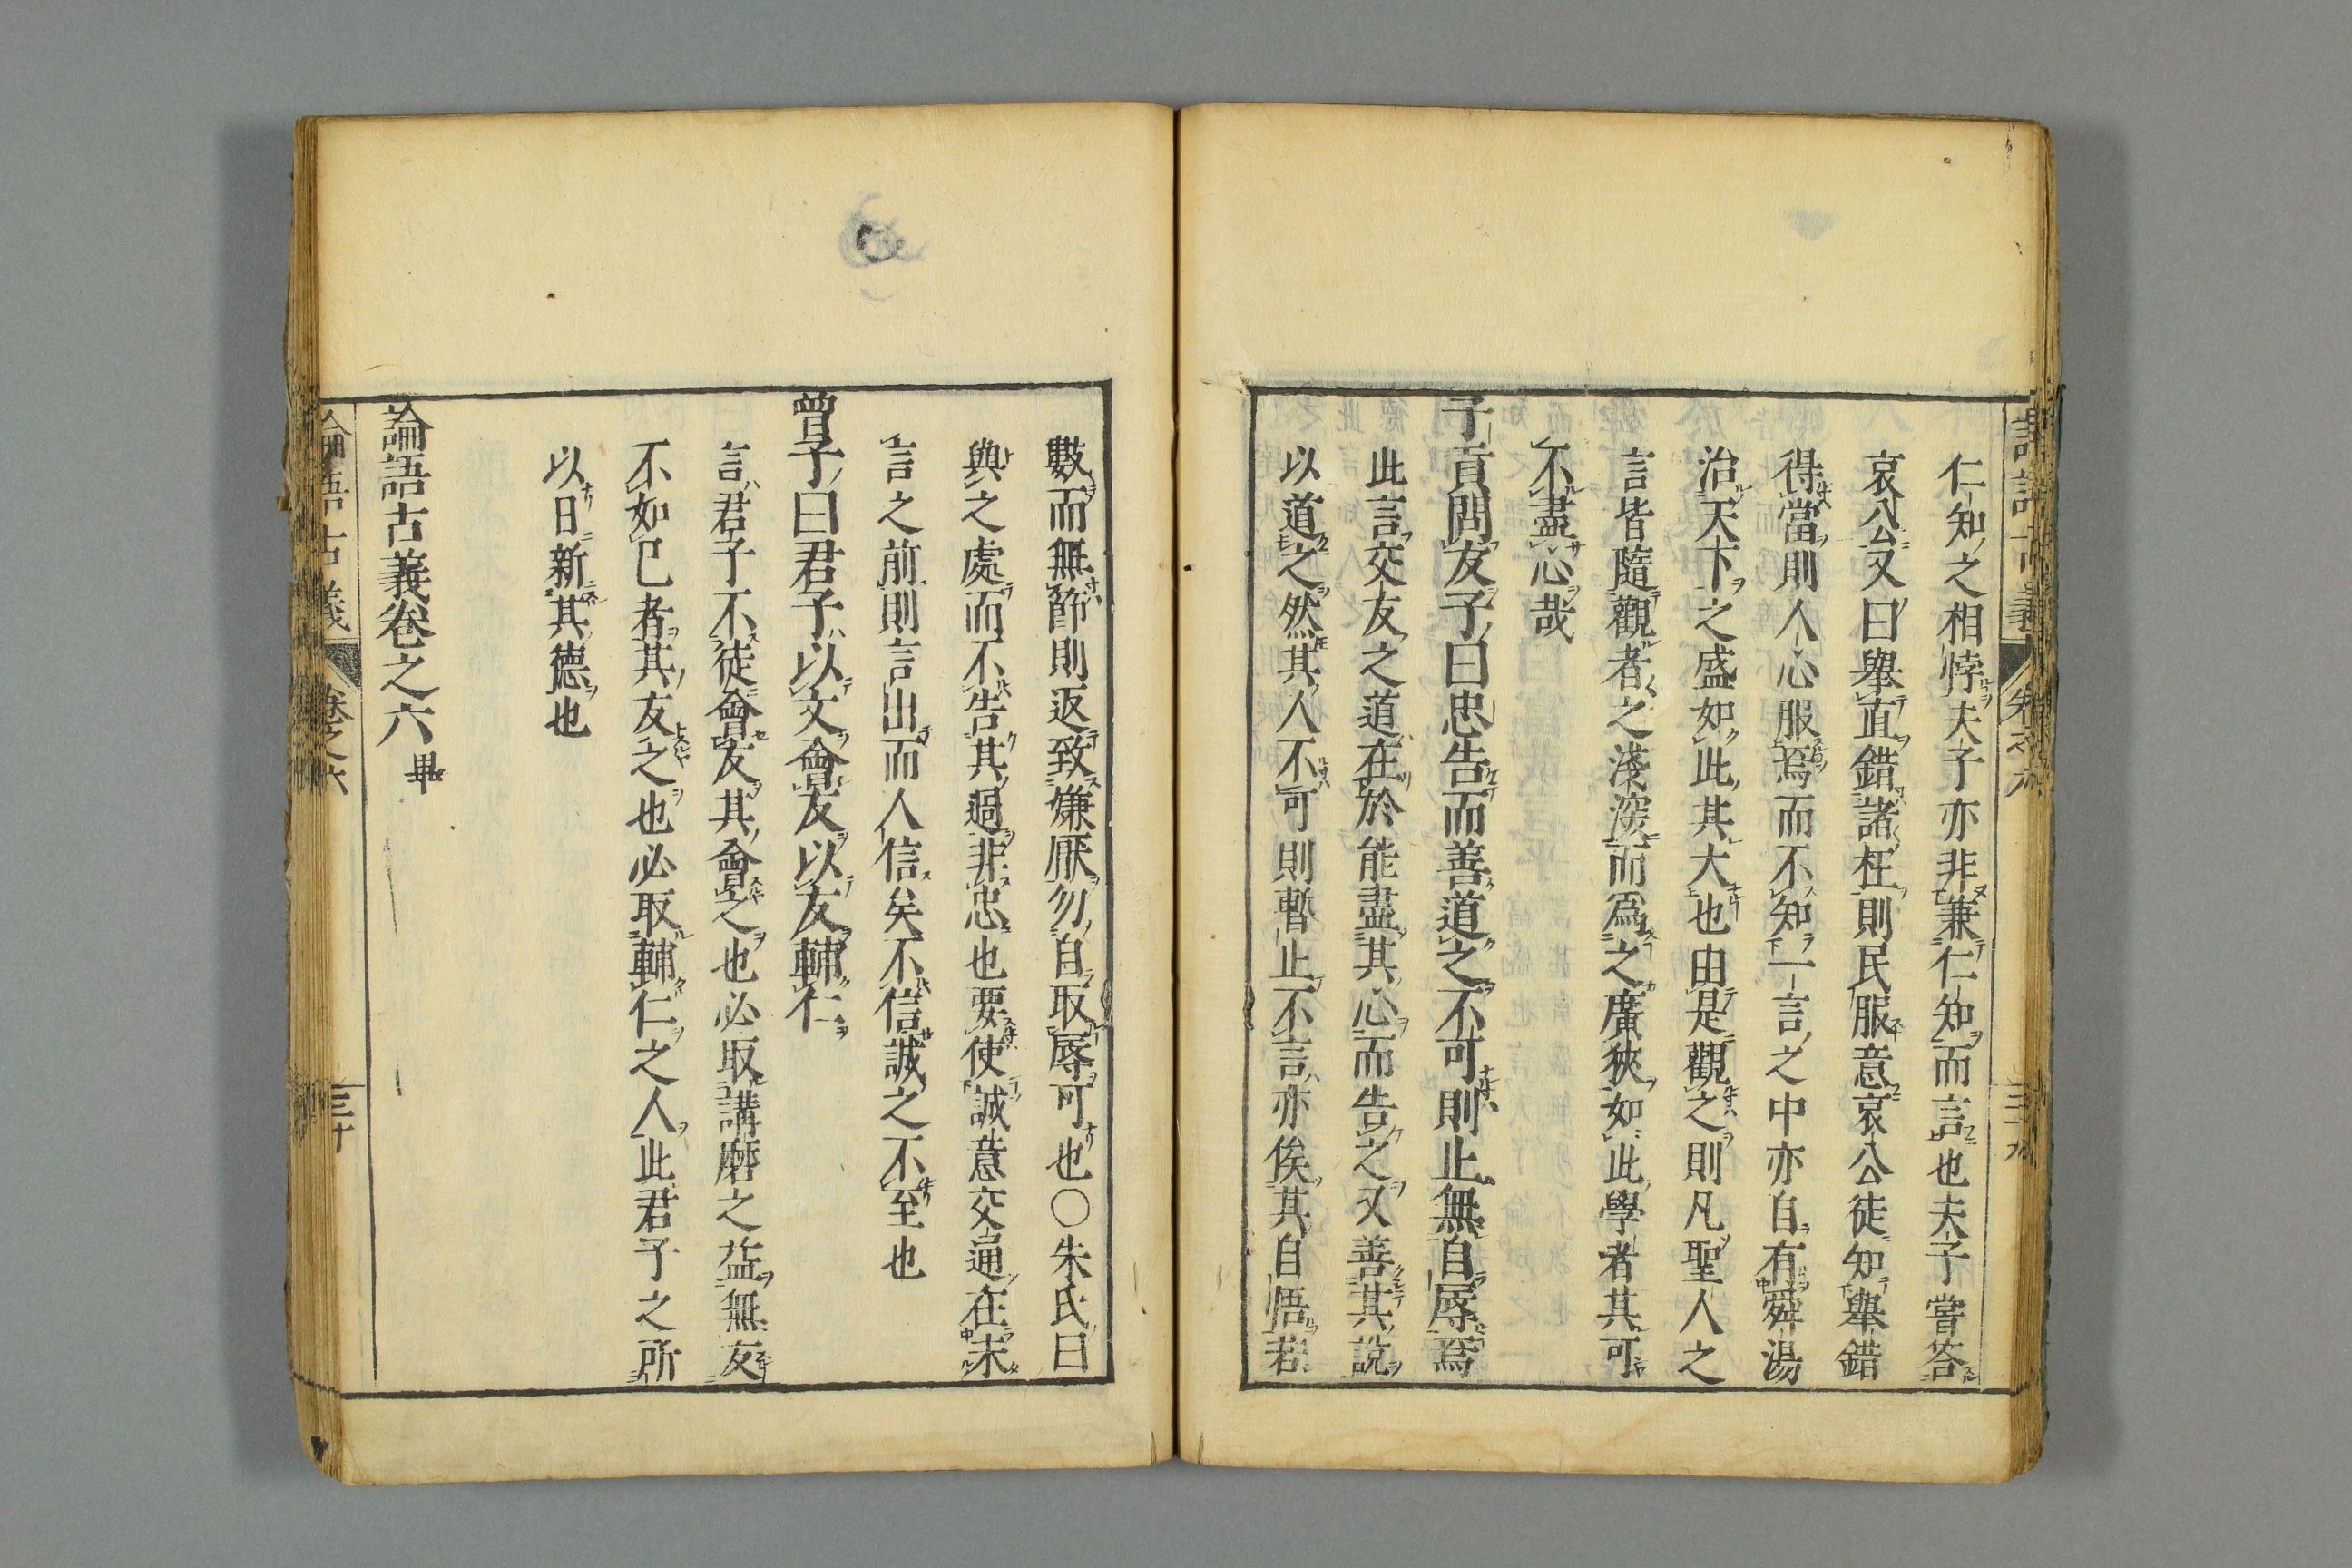 仁知之相悖夫子亦非兼仁知而言也夫子嘗答
哀公又曰舉直錯諸枉則民服意哀公徒知舉錯
得當則人心服焉而不知一言之中亦自有舜湯
治天下之盛如此其大也由是觀之則凡聖人之
言皆隨觀者之淺深而爲之廣狹如此學者其可
不盡心哉
子貢問友子曰忠告而善道之不可則止無自辱焉
此言交友之道在於能盡其心而告之又善其說
以道之然其人不可則暫止不言亦俟其自悟若
數而無節則返致嫌厭勿自取辱可也○朱氏曰
與之處而不告其過非忠也要使誠意交通在未
言之前則言出而人信矣不信誠之不至也
曾子曰君子以文會友以友輔仁
言君子不徒會友其會之也必取講磨之益無友
不如己者其友之也必取輔仁之人此君子之所
以日新其德也
論語古義卷之六畢
論語古義 卷之六 三十